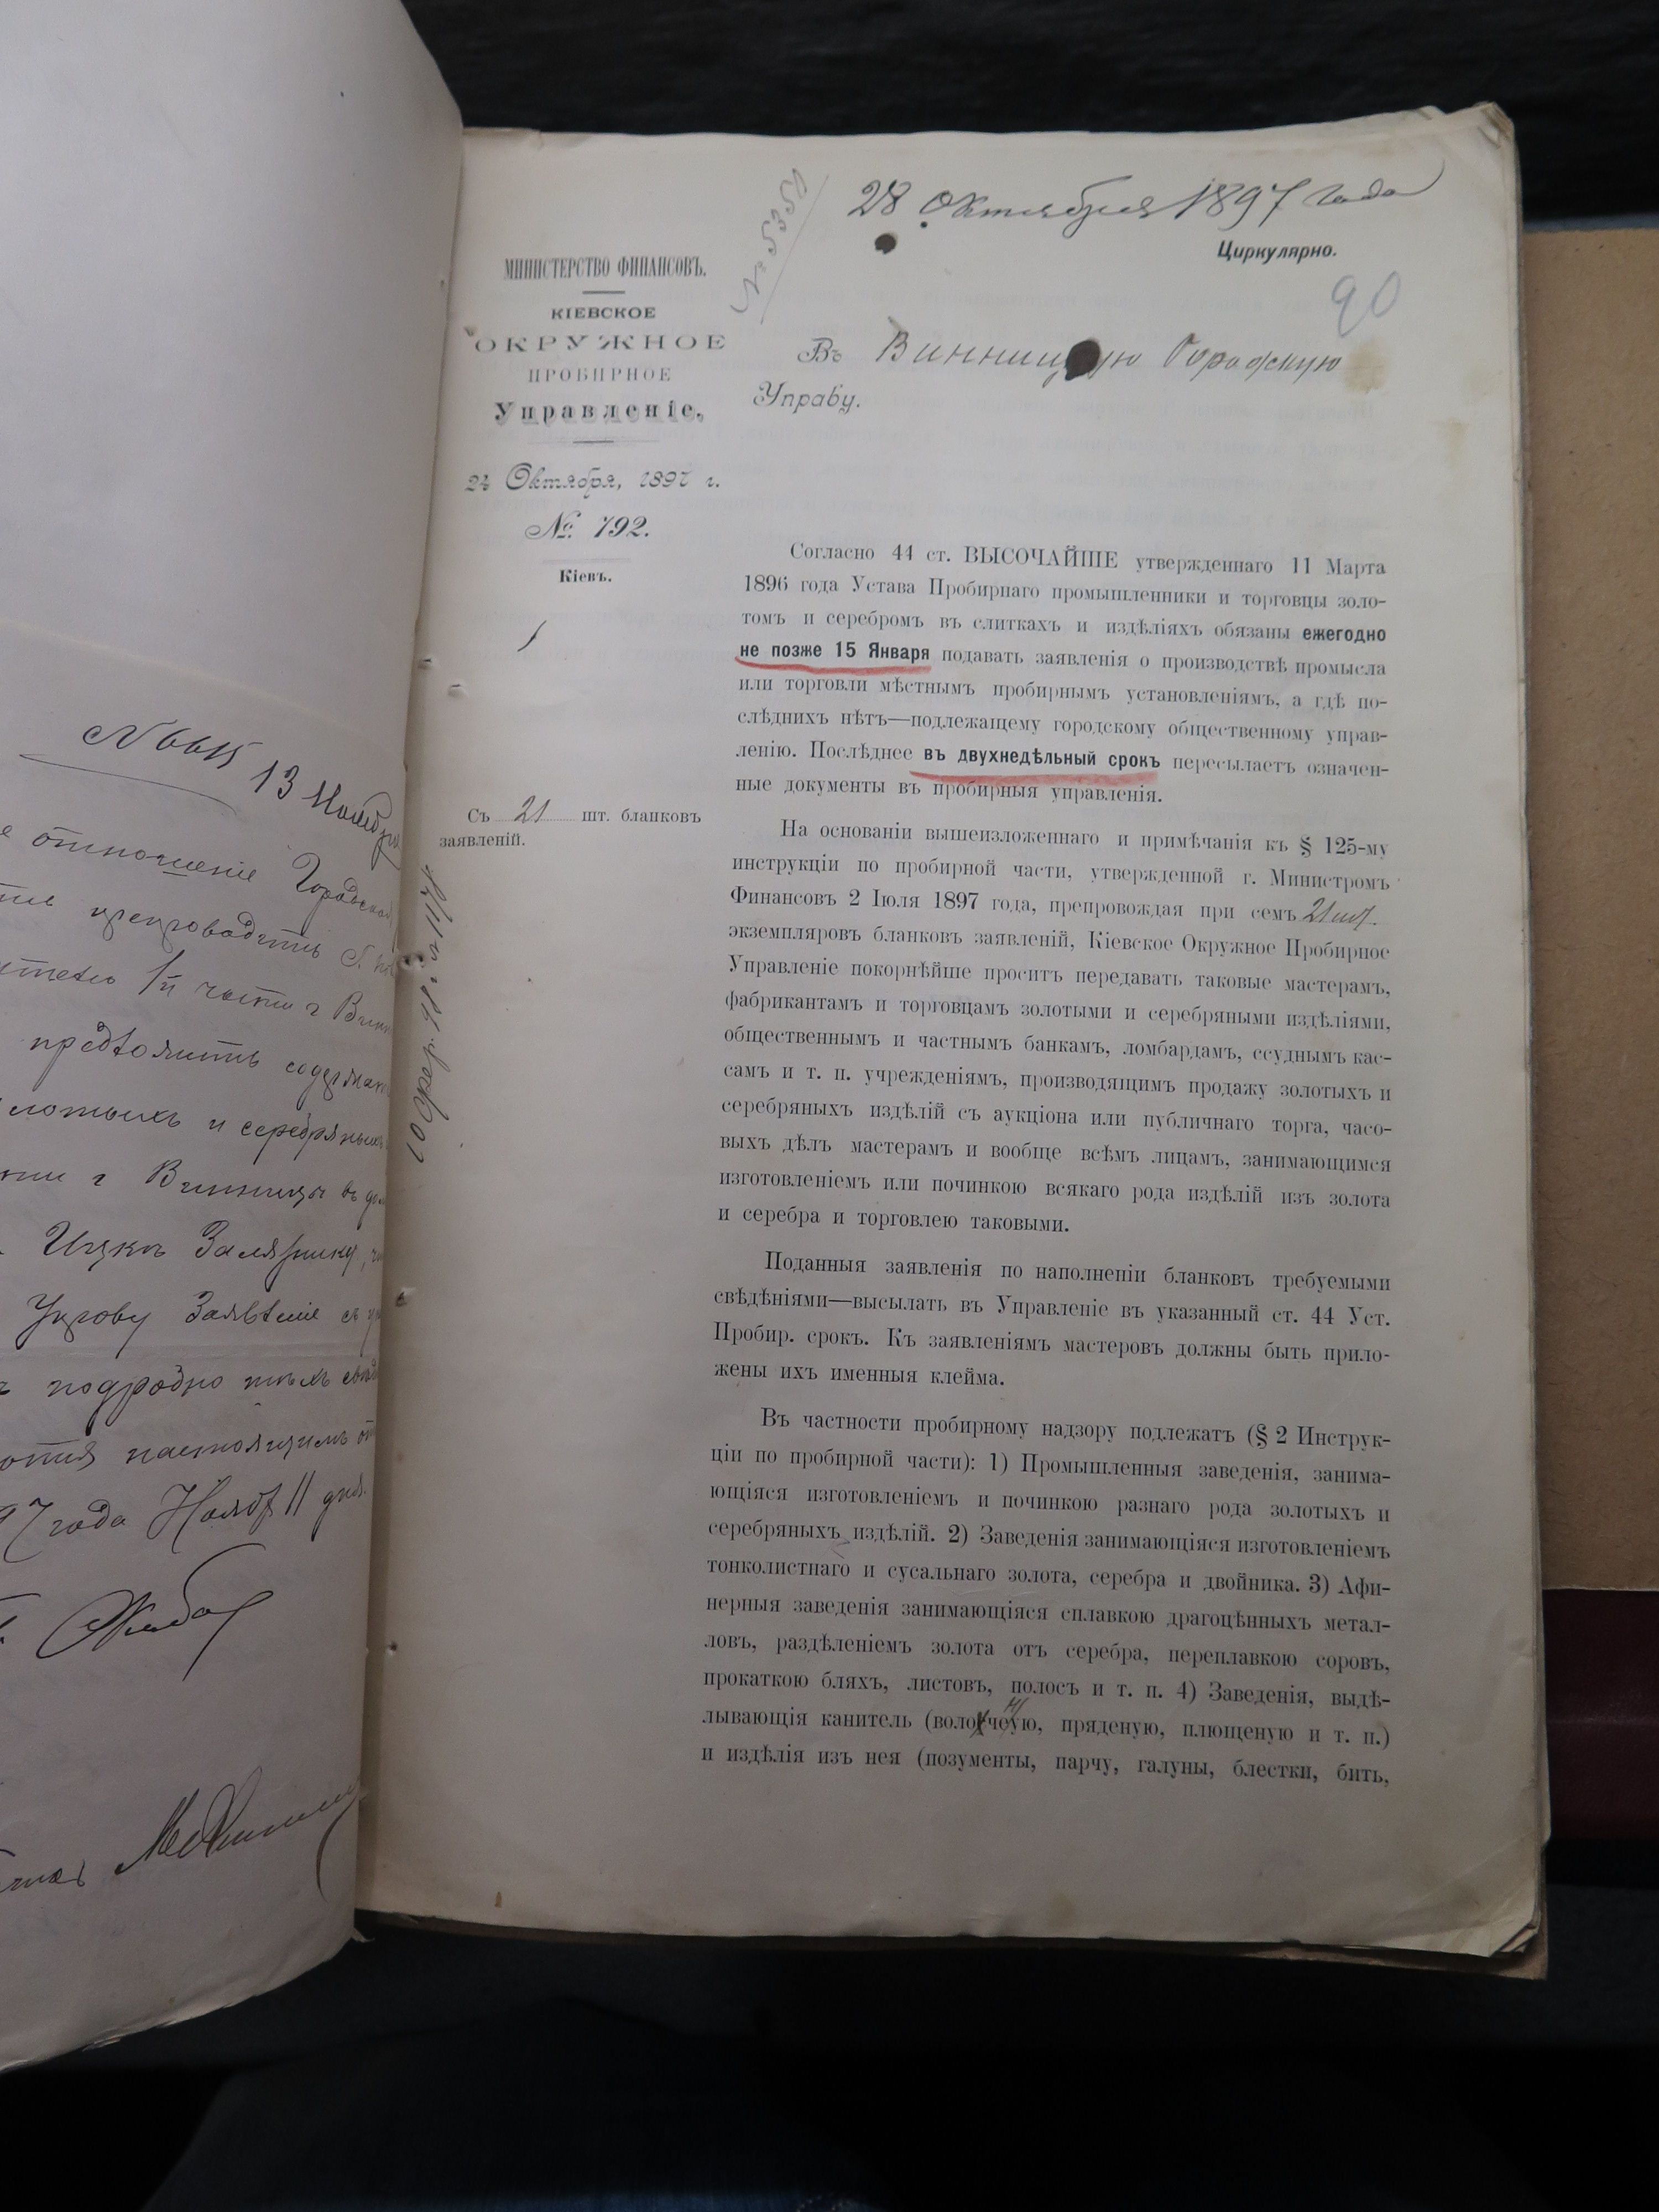 28 Октября 1897 года
№ 5350
Циркулярно.
90
МИНИСТЕРСТВО ФИНАНСОВЪ.
КІЕВСКОЕ
ОКРУЖНОЕ
ПРОБИРНОЕ
Управленіе.
24 Октября, 1897 г.
№ 792.
Кіевъ.
Въ Винницкую Городскую
Управу.
Согласно 44 ст. ВЫСОЧАЙШЕ утвержденнаго 11 Марта
1896 года Устава Пробирнаго промышленники и торговцы золо-
томъ и серебромъ въ слиткахъ и издѣліяхъ обязаны ежегодно
не позже 15 Января подавать заявленія о производствѣ промысла
или торговли мѣстнымъ пробирнымъ установленіямъ, а гдѣ по-
слѣднихъ нѣтъ—подлежащему городскому общественному управ-
ленію. Послѣднее въ двухнедѣльный срокъ пересылаетъ означен-
ные документы въ пробирныя управленія.
Съ 21 шт. бланковъ
заявленій.
На основаніи вышеизложеннаго и примѣчанія къ § 125-му
инструкціи по пробирной части, утвержденной г. Министромъ
Финансовъ 2 Іюля 1897 года, препровождая при семъ 21 шт.
экземпляровъ бланковъ заявленій, Кіевское Окружное Пробирное
Управленіе покорнѣйше проситъ передавать таковые мастерамъ,
фабрикантамъ и торговцамъ золотыми и серебряными издѣліями,
общественнымъ и частнымъ банкамъ, ломбардамъ, ссуднымъ кас-
самъ и т. п. учрежденіямъ, производящимъ продажу золотыхъ и
серебряныхъ издѣлій съ аукціона или публичнаго торга, часо-
выхъ дѣлъ мастерамъ и вообще всѣмъ лицамъ, занимающимся
изготовленіемъ или починкою всякаго рода издѣлій изъ золота
и серебра и торговлею таковыми.
Поданныя заявленія по наполненіи бланковъ требуемыми
свѣдѣніями—высылать въ Управленіе въ указанный ст. 44 Уст.
Пробир. срокъ. Къ заявленіямъ мастеровъ должны быть прило-
жены ихъ именныя клейма.
Въ частности пробирному надзору подлежатъ (§ 2 Инструк-
ціи по пробирной части): 1) Промышленныя заведенія, занима-
ющіяся изготовленіемъ и починкою разнаго рода золотыхъ и
серебряныхъ издѣлій. 2) Заведенія занимающіяся изготовленіемъ
тонколистнаго и сусальнаго золота, серебра и двойника. 3) Афи-
нерныя заведенія занимающіяся сплавкою драгоцѣнныхъ метал-
ловъ, раздѣленіемъ золота отъ серебра, переплавкою соровъ,
прокаткою бляхъ, листовъ, полосъ и т. п. 4) Заведенія, выдѣ-
лывающія канитель (волоченую, пряденую, плющеную и т. п.)
и издѣлія изъ нея (позументы, парчу, галуны, блестки, бить,
13 Ноября
отношеніе Городской
препроводить
1й части г
предложить
и серебряныхъ
г Винницы въ
Ицкѣ
Управу Заявленіе
подробно
настоящимъ
года Нояб 11 дня.